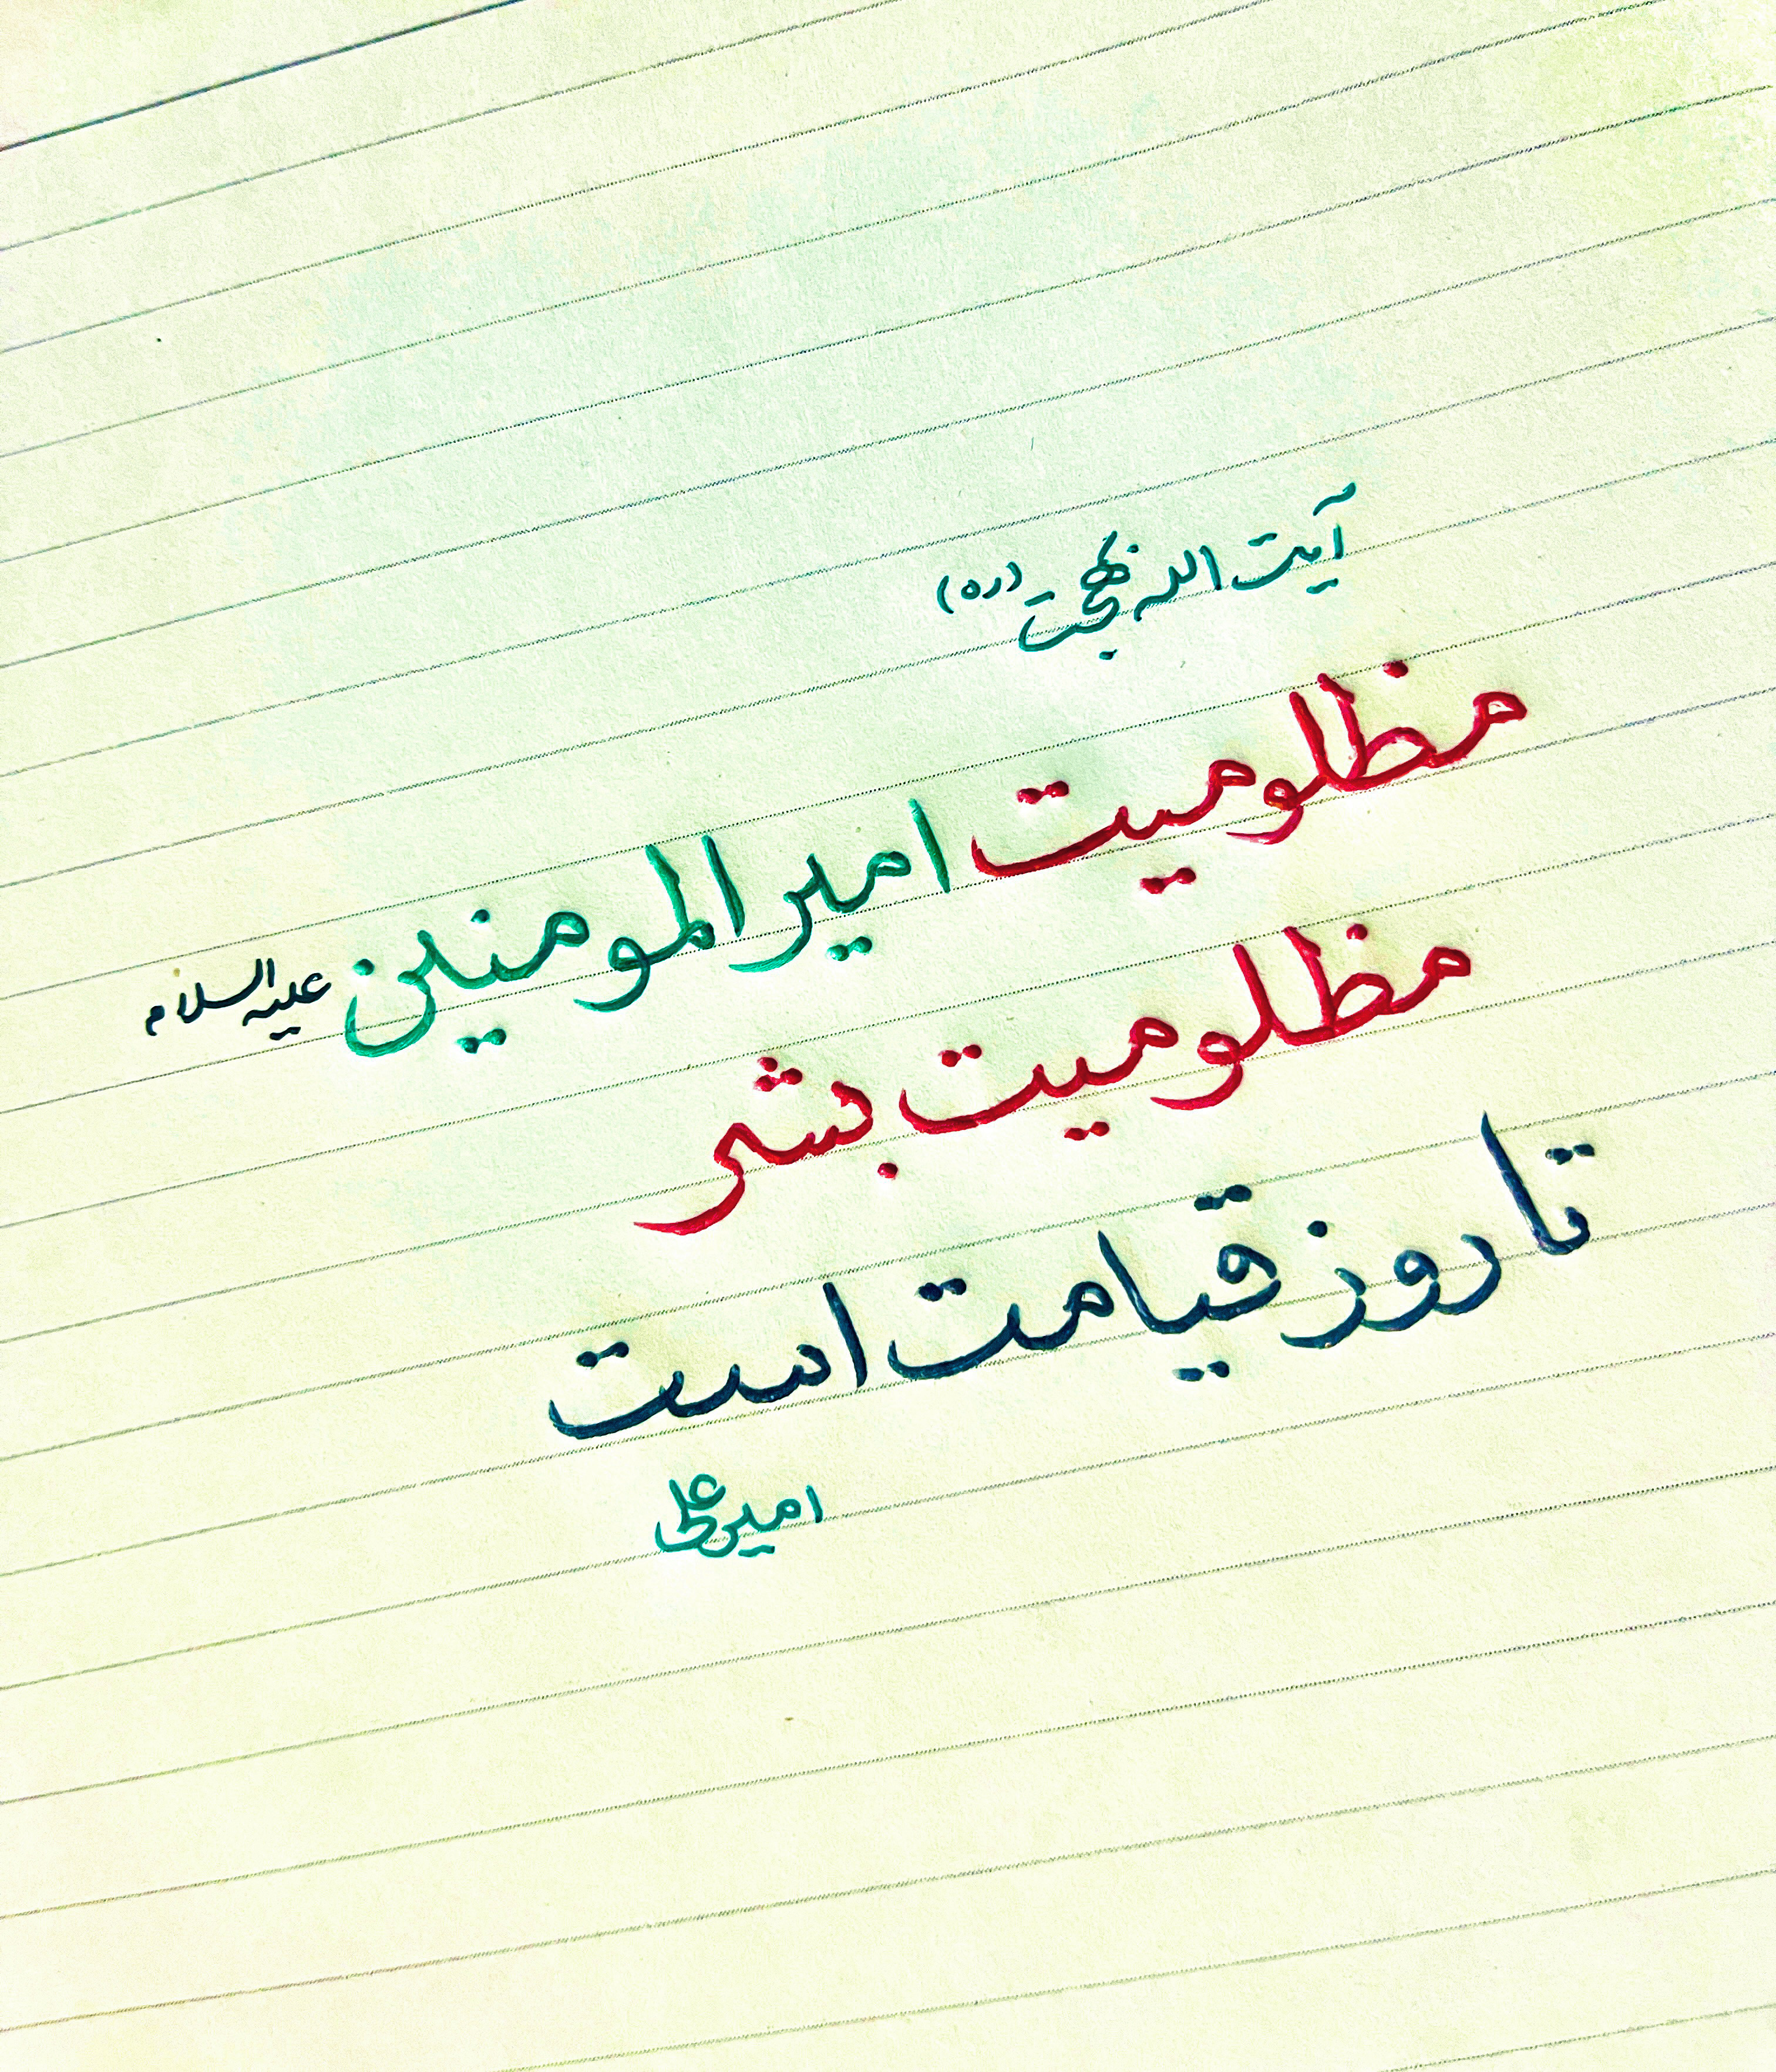 آیت الله بهجت (ره)
مظلومیت امیرالمومنین علیه السلام
مظلومیت بشر
تا روز قیامت است
امیرعلی